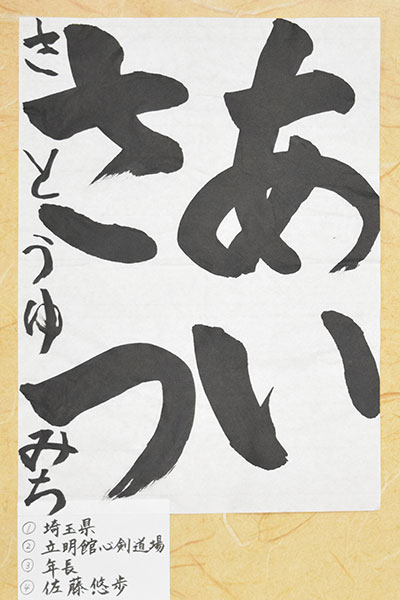 あい
さつ
さとうゆみち
① 埼玉県
② 立明館心剣道場
③ 年長
④ 佐藤悠歩